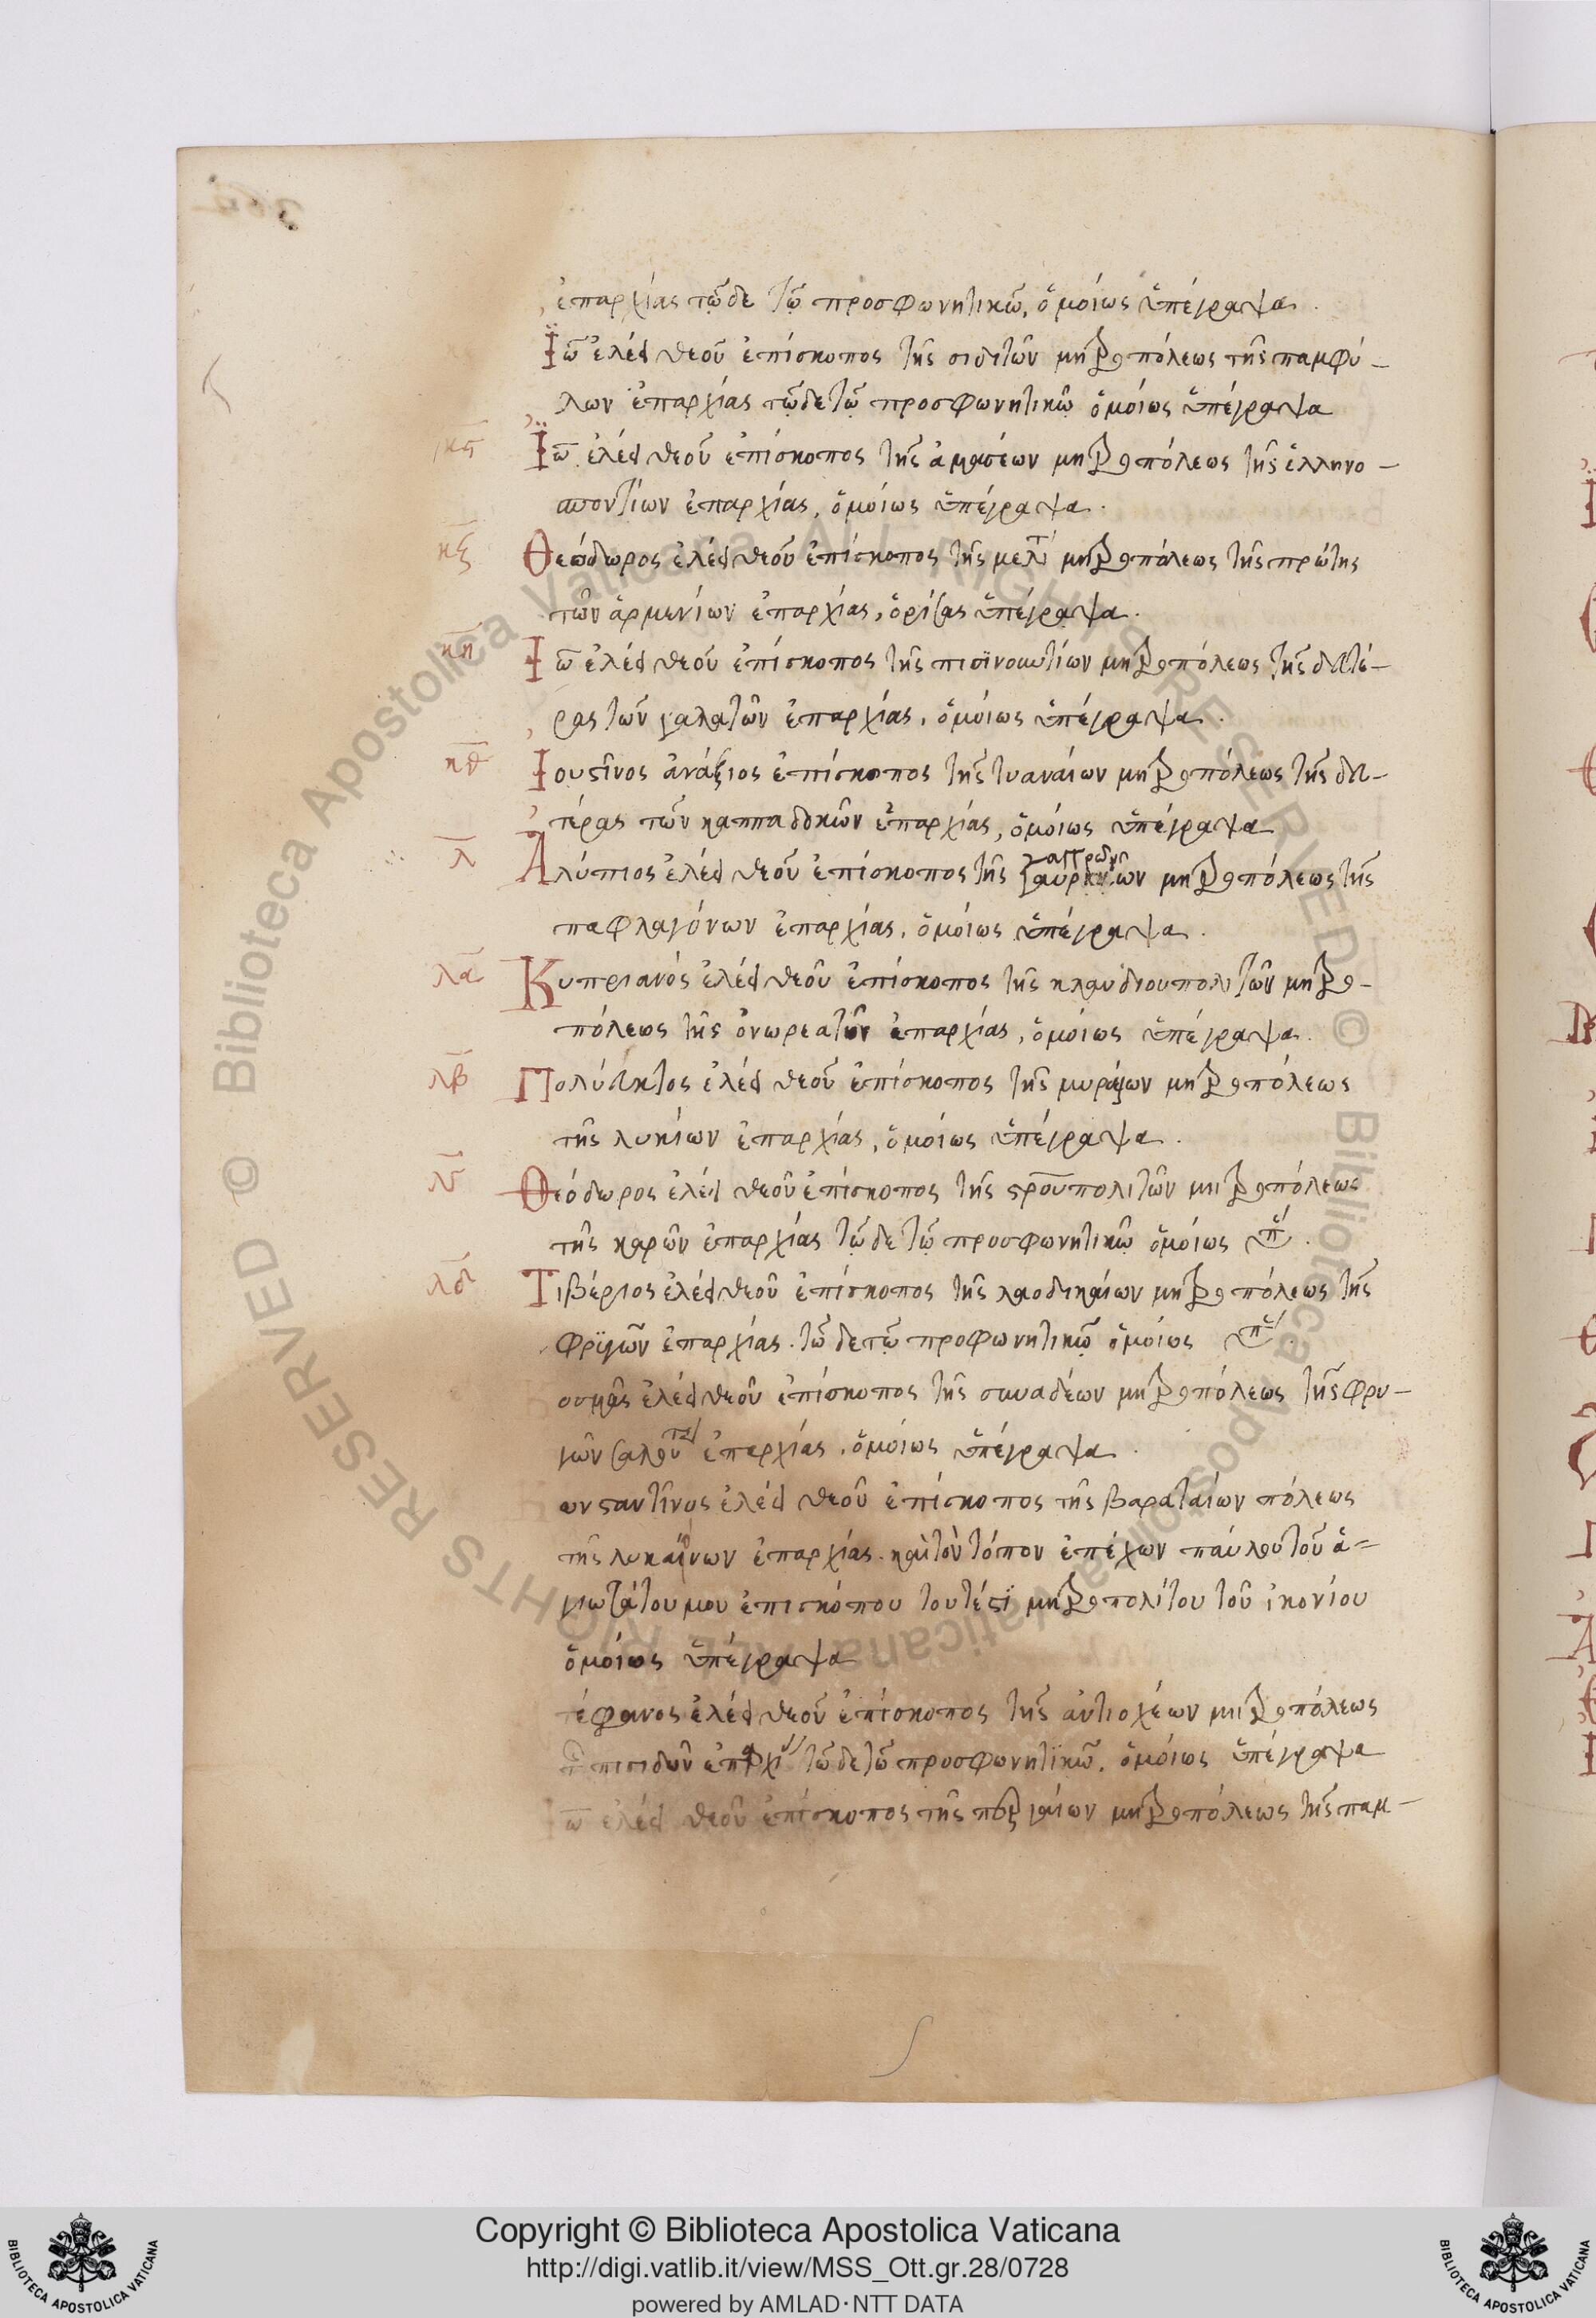 ἐπαρχίας τῷδε τῷ προσφωνητικῷ, ὁμοίως ὑπέγραψα.
Ἰω̅ ἐλέει θεοῦ ἐπίσκοπος τῆς σιδιτῶν μητροπόλεως τῆς παμφύ-
λων ἐπαρχίας τῷδε τῷ προσφωνητικῷ ὁμοίως ὑπέγραψα
κϛ Ἰω̅ ἐλέει θεοῦ ἐπίσκοπος τῆς ἀμασέων μητροπόλεως τῆς ἑλληνο-
ποντίων ἐπαρχίας, ὁμοίως ὑπέγραψα.
κζ Θεόδωρος ἐλέει θεοῦ ἐπίσκοπος τῆς μελιτ μητροπόλεως τῆς πρώτης
τῶν ἀρμενίων ἐπαρχίας, ὁρίσας ὑπέγραψα.
κη Ἰω̅ ἐλέει θεοῦ ἐπίσκοπος τῆς πισινουντίων μητροπόλεως τῆς δευτέ-
ρας τῶν γαλατῶν ἐπαρχίας, ὁμοίως ὑπέγραψα.
κθ Ἰουστῖνος ἀνάξιος ἐπίσκοπος τῆς τυαναίων μητροπόλεως τῆς δευ-
τέρας τῶν καππαδοκῶν ἐπαρχίας, ὁμοίως ὑπέγραψα
λ Ἀλύπιος ἐλέει θεοῦ ἐπίσκοπος τῆς μητροπόλεως τῆς
παφλαγόνων ἐπαρχίας, ὁμοίως ὑπέγραψα.
λα Κυπριανός ἐλέει θεοῦ ἐπίσκοπος τῆς κλαυδιουπολιτῶν μητρο-
πόλεως τῆς ὀνωρεατῶν ἐπαρχίας, ὁμοίως ὑπέγραψα.
λβ Πολύευκτος ἐλέει θεοῦ ἐπίσκοπος τῆς μυραίων μητροπόλεως
τῆς λυκίων ἐπαρχίας, ὁμοίως ὑπέγραψα.
λγ Θεόδωρος ἐλέει θεοῦ ἐπίσκοπος τῆς σ̅ρ̅ουπολιτῶν μητροπόλεως
τῆς καρῶν ἐπαρχίας τῷδε τῷ προσφωνητικῷ ὁμοίως ὑπέ.
λδ Τιβέριος ἐλέει θεοῦ ἐπίσκοπος τῆς λαοδικαίων μητροπόλεως τῆς
φρϊγῶν ἐπαρχίας. τῷδε τῷ προφωνητικῷ ὁμοίως ὑπέ.
οσμᾶς ἐλέει θεοῦ ἐπίσκοπος τῆς συναδέων μητροπόλεως τῆς φρυ-
γῶν σαλουτα ἐπαρχίας, ὁμοίως ὑπέγραψα.
ωνσταντῖνος ἐλέει θεοῦ ἐπίσκοπος τῆς βαραταίων πόλεως
τῆς λυκαόνων ἐπαρχίας. καὶ τὸν τόπον ἐπέχων παύλου τοῦ ἁ=
γιωτάτου μου ἐπισκόπου τουτέστι μητροπολίτου τοῦ ἰκονίου
ὁμοίως ὑπέγραψα
τέφανος ἐλέει θεοῦ ἐπίσκοπος τῆς ἀντιοχέων μητροπόλεως
πισιδῶν ἐπαρχι τῷδε τῷ προσφωνητικῷ. ὁμοίως ὑπέγραψα
Ἰω̅ ἐλέει θεοῦ ἐπίσκοπος τῆς περγαίων μητροπόλεως τῆς παμ-
© Biblioteca Apostolica Vaticana ALL RIGHTS RESERVED © Biblioteca Apostolica Vaticana ALL RIGHTS RESERVED
Copyright © Biblioteca Apostolica Vaticana
http://digi.vatlib.it/view/MSS_Ott.gr.28/0728
powered by AMLAD·NTT DATA
BIBLIOTECA APOSTOLICA VATICANA
BIBLIOTECA APOSTOLICA VATICANA